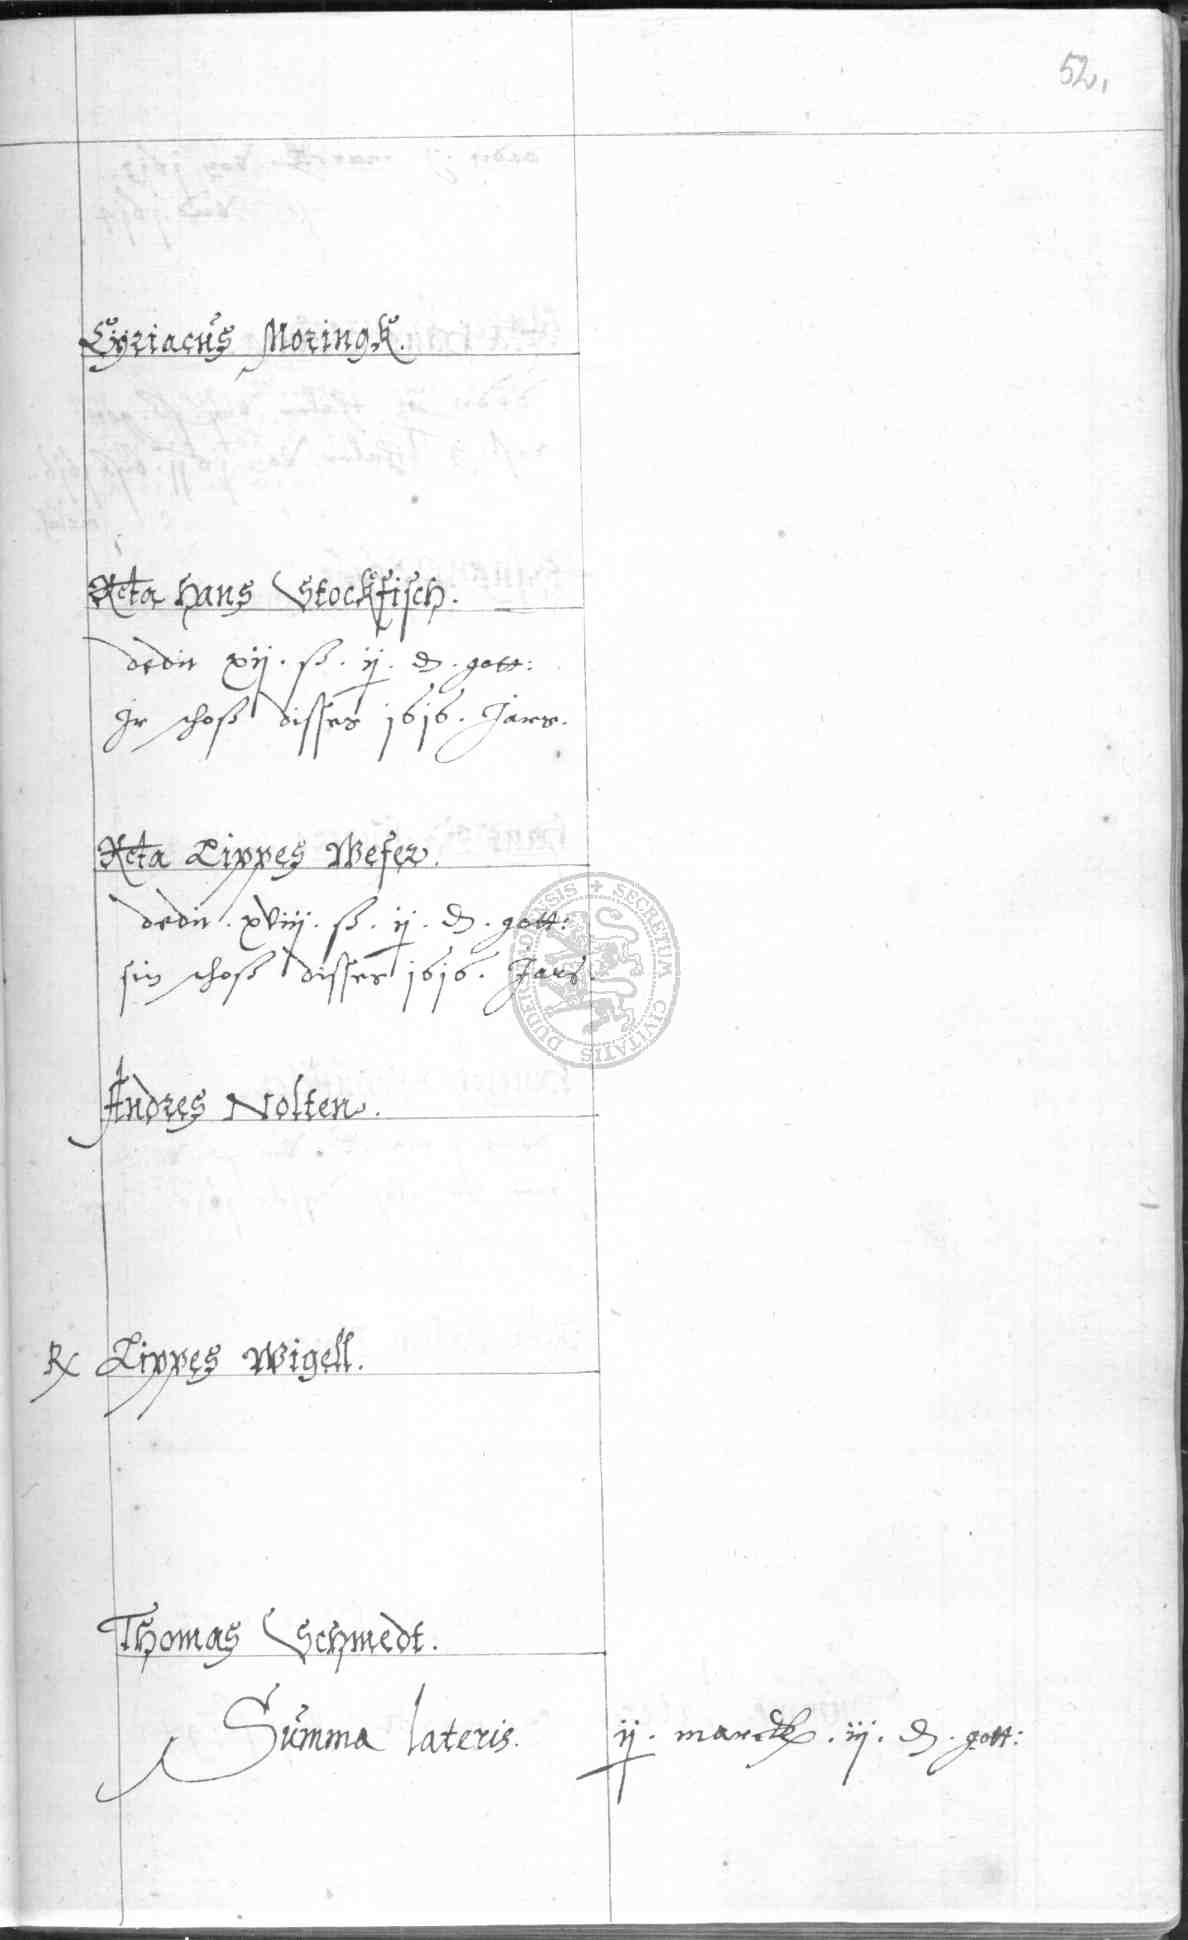 52.
Cyriacus Moringk.
Rcta Hans Stockfisch.
dedit xij. ß. ij. ₰. gott:
Ir schoß disses 1616. Jars.
Rcta Lippes Weser.
dedit. xviij. ß. ij. ₰. gott:
sin schoß disses 1616. Jars.
Andres Nolten.
Rx Lippes Wigell.
Thomas Schmedt.
Summa lateris. ij. marck. iij. ₰. gott:
SECRETUM CIVITATIS DUDERSTADENSIS